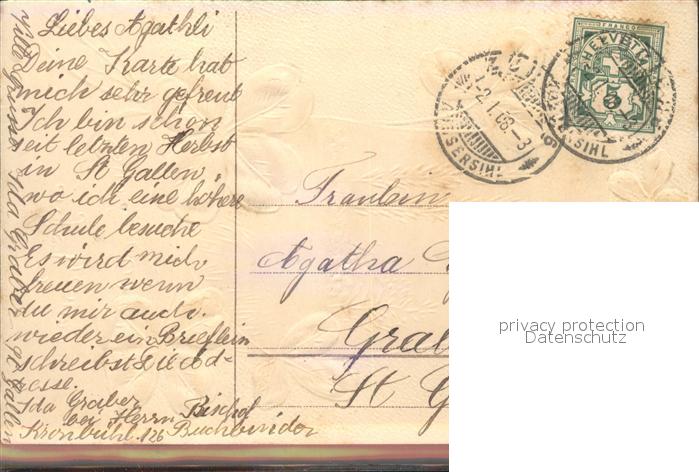 Liebes Agathli
Deine Karte hat
mich sehr gefreut
Ich bin schon
seit letzten Herbst
in St Gallen,
wo ich eine höhere
Schule besuche
Es wird mich
freuen wenn
du mir auch
wieder ein Brieflein
schreibst
Ida Graber
bei Herrn Bischof
Kronbühl. 126 Buchbinder
Ida Graber St Gallen
Fraulein
Agatha
St G
HELVETIA
FRANCO
5
2.1.08.-3
USSERSIHL
ERSIHL
privacy protection
Datenschutz